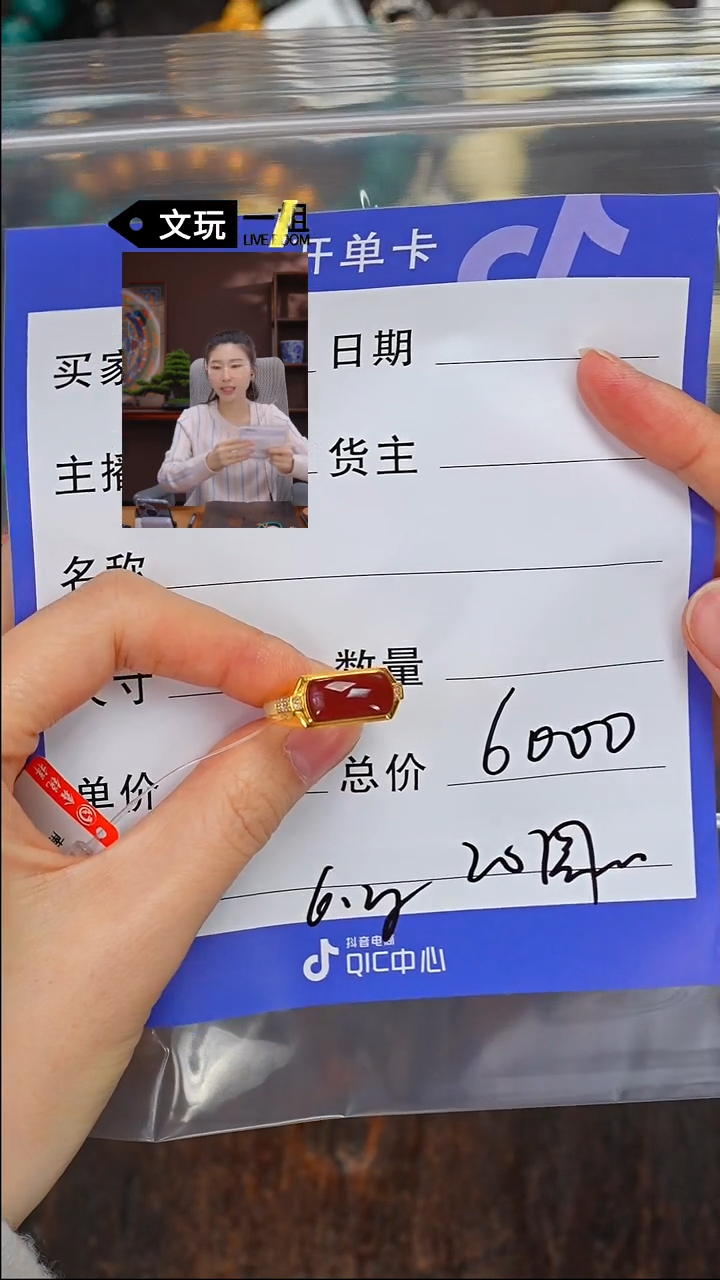 文玩
LIVE ROOM
开单卡
买家
日期
主播
货主
名称
尺寸
数量
单价
总价
6000
抖音电商
QIC中心